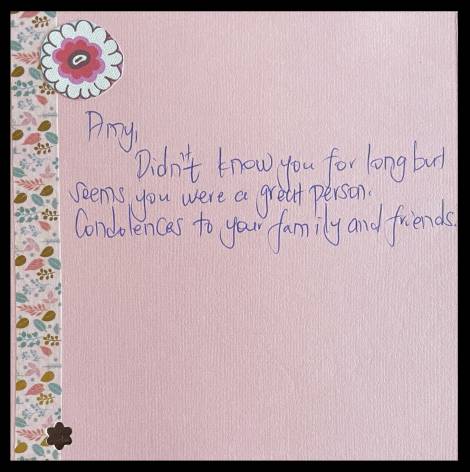 Amy,
Didn't know you for long but
seems you were a great person.
Condolences to your family and friends.